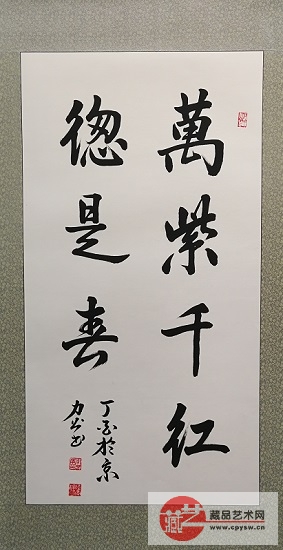 萬紫千红
總是春
丁亥於京
藏艺
藏品艺术网
www.cpysw.cn